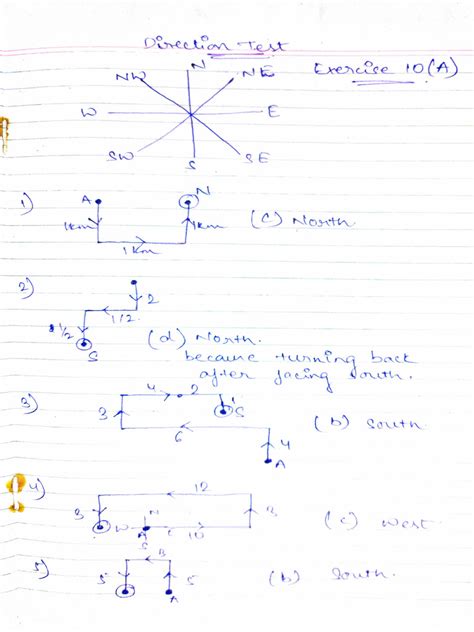 Direction Test
Exercise 10(A)
N
NW
NE
W
E
SW
SE
S
1)
A
N
1km
1km
1km
(C) North
2)
2
1/2
1/2
S
(d) North.
because turning back
after facing south.
3)
4
2
1
3
S
6
4
A
(b) South
4)
12
3
W
N
A
S
E
10
3
(c) West
5)
3
5
5
A
(b) South.